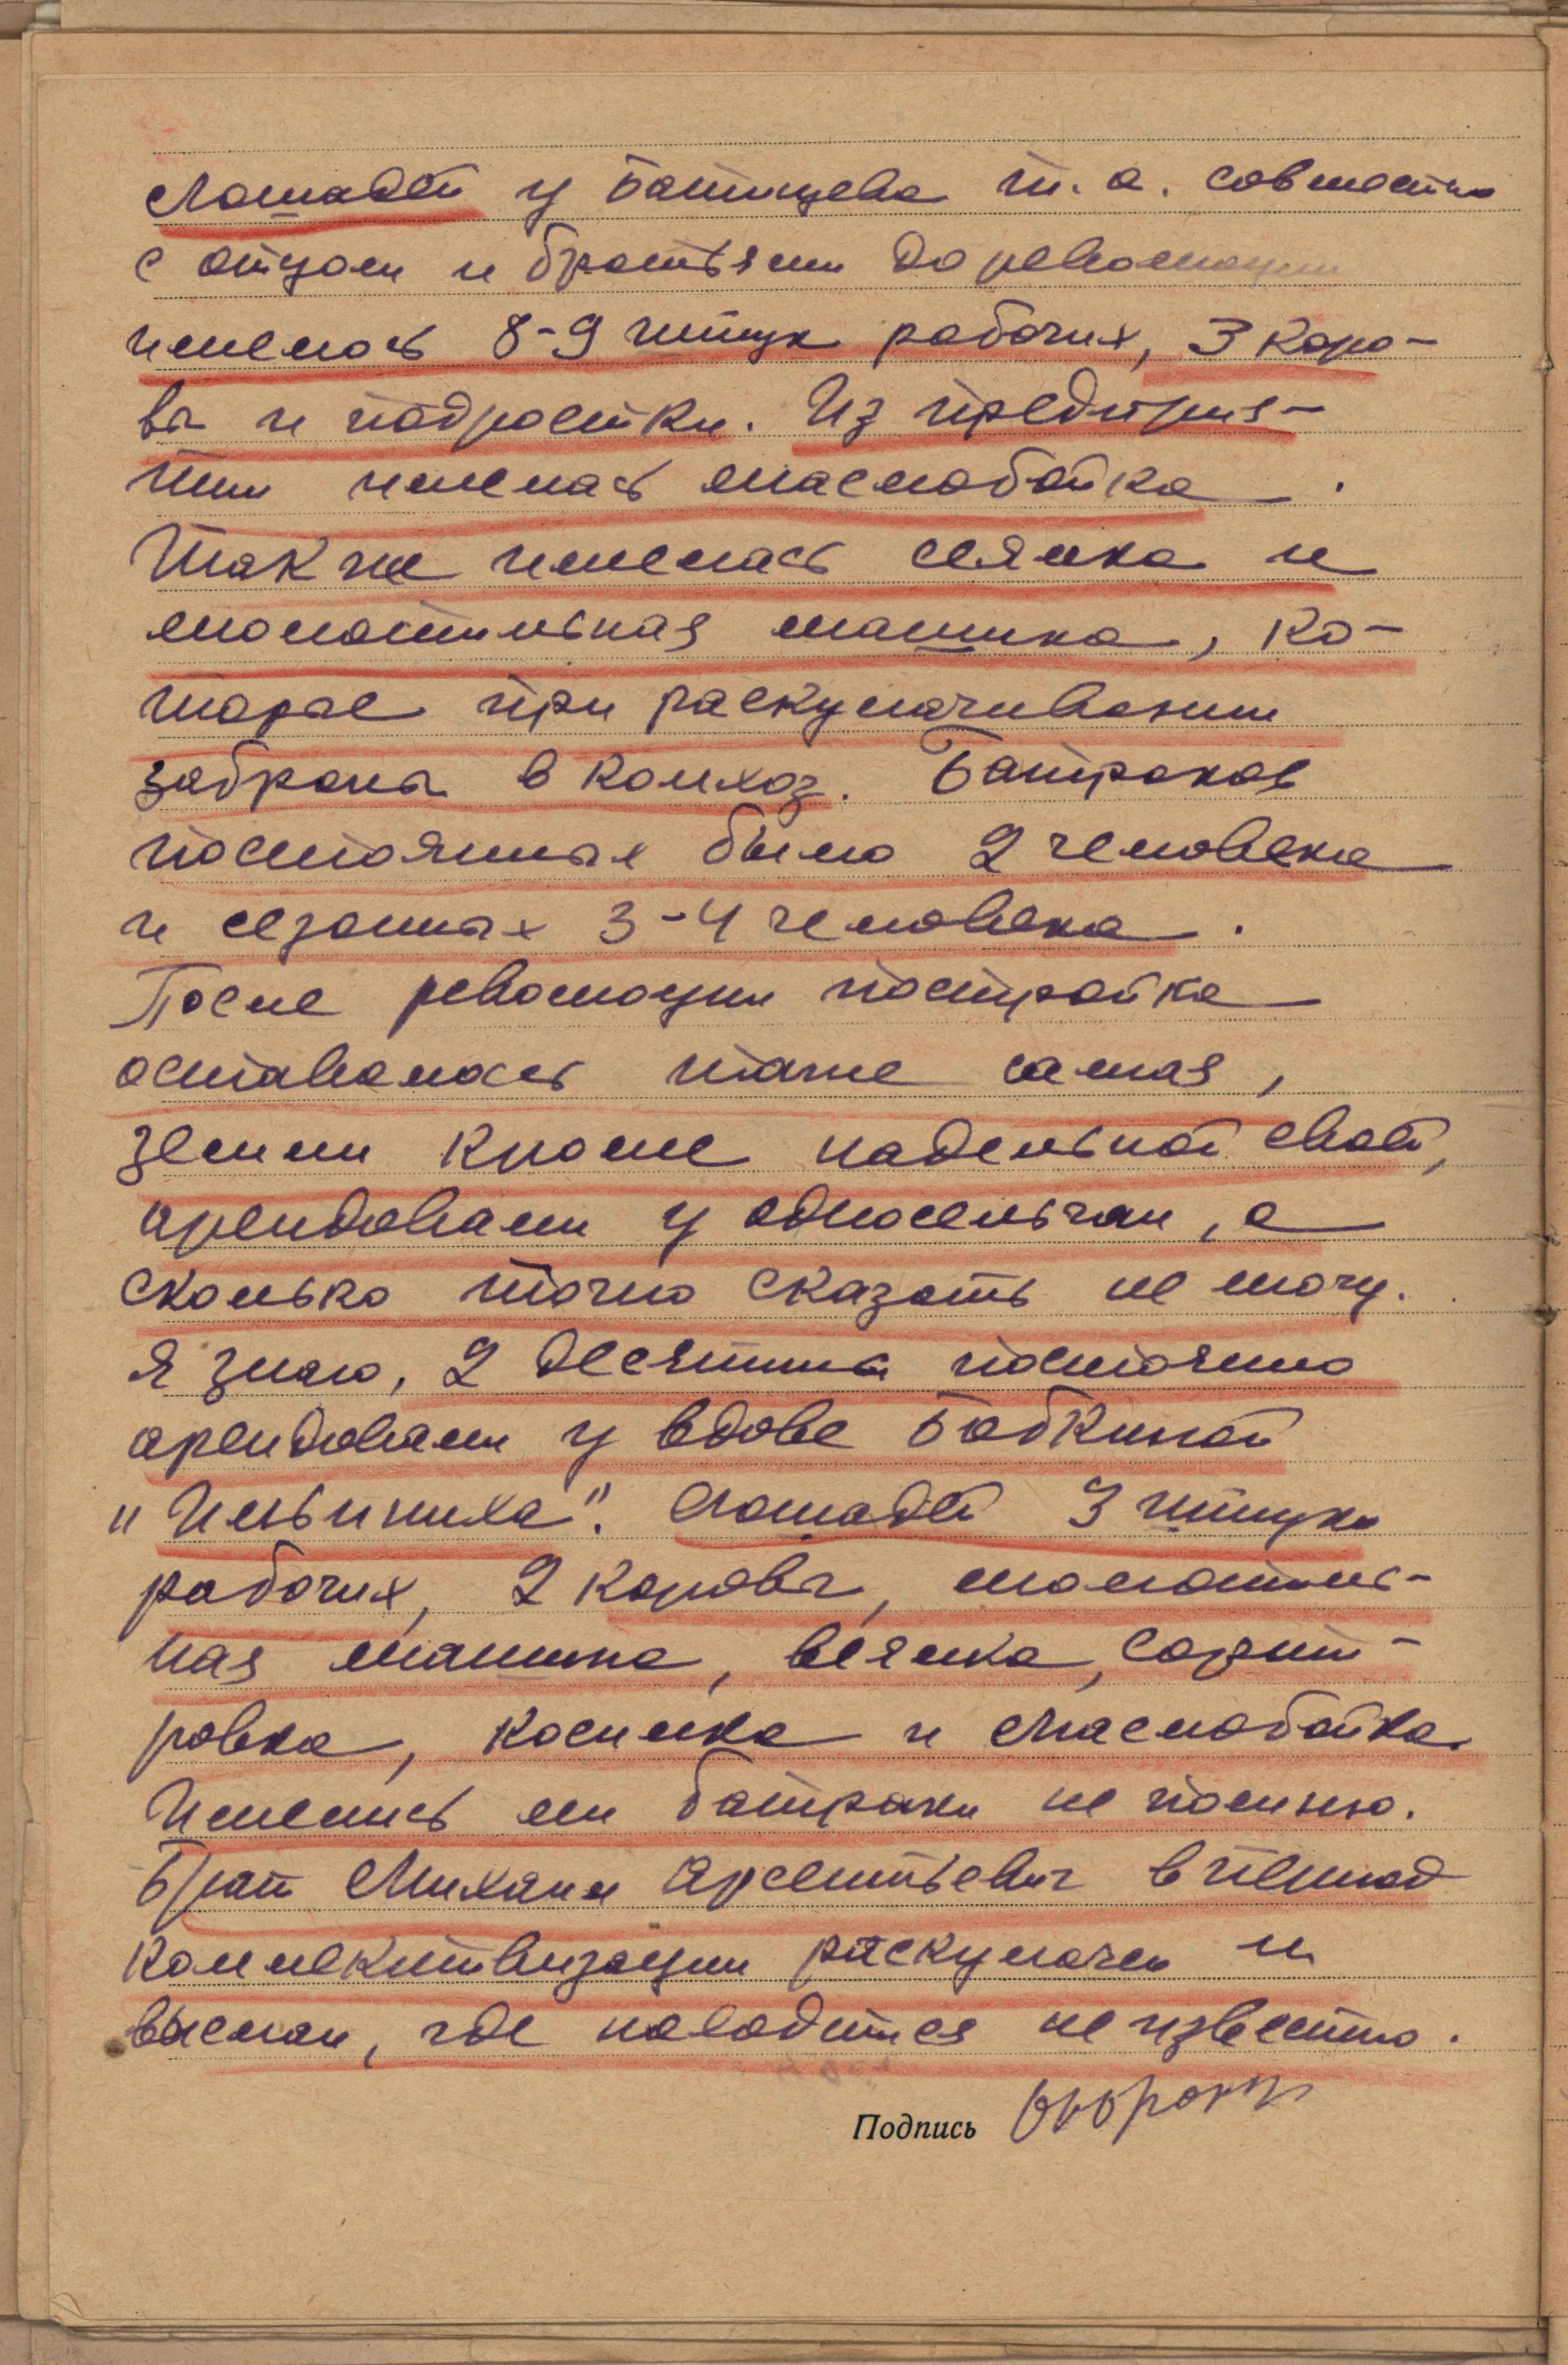 Лошадей у Батищева т. а. совместно
с отцом и братьями до революции
имелось 8-9 штук рабочих, 3 коро-
вы и подростки. Из предприя-
тии имелась маслобойка.
Так же имелась сеялка и
молотильная машина, ко-
торые при раскулачивании
забраны в колхоз. Батраков
постоянных было 2 человека
и сезонных 3-4 человека.
После революции постройка
оставалась таже самая,
земли кроме надельной своей,
арендовали у односельчан, а
сколько точно сказать не могу.
Я знаю, 2 десятины постоянно
арендовали у вдове Бабкиной
"Ильиниха". Лошадей 3 штуки
рабочих, 2 коровы, молотиль-
ная машина, веялка, сортит-
ровка, косилка и маслобойка.
Имелись ли батраки не помню.
Брат Михаил Арсентьевич в период
коллективизации раскулачен и
выслан, где находится не известно.
Подпись